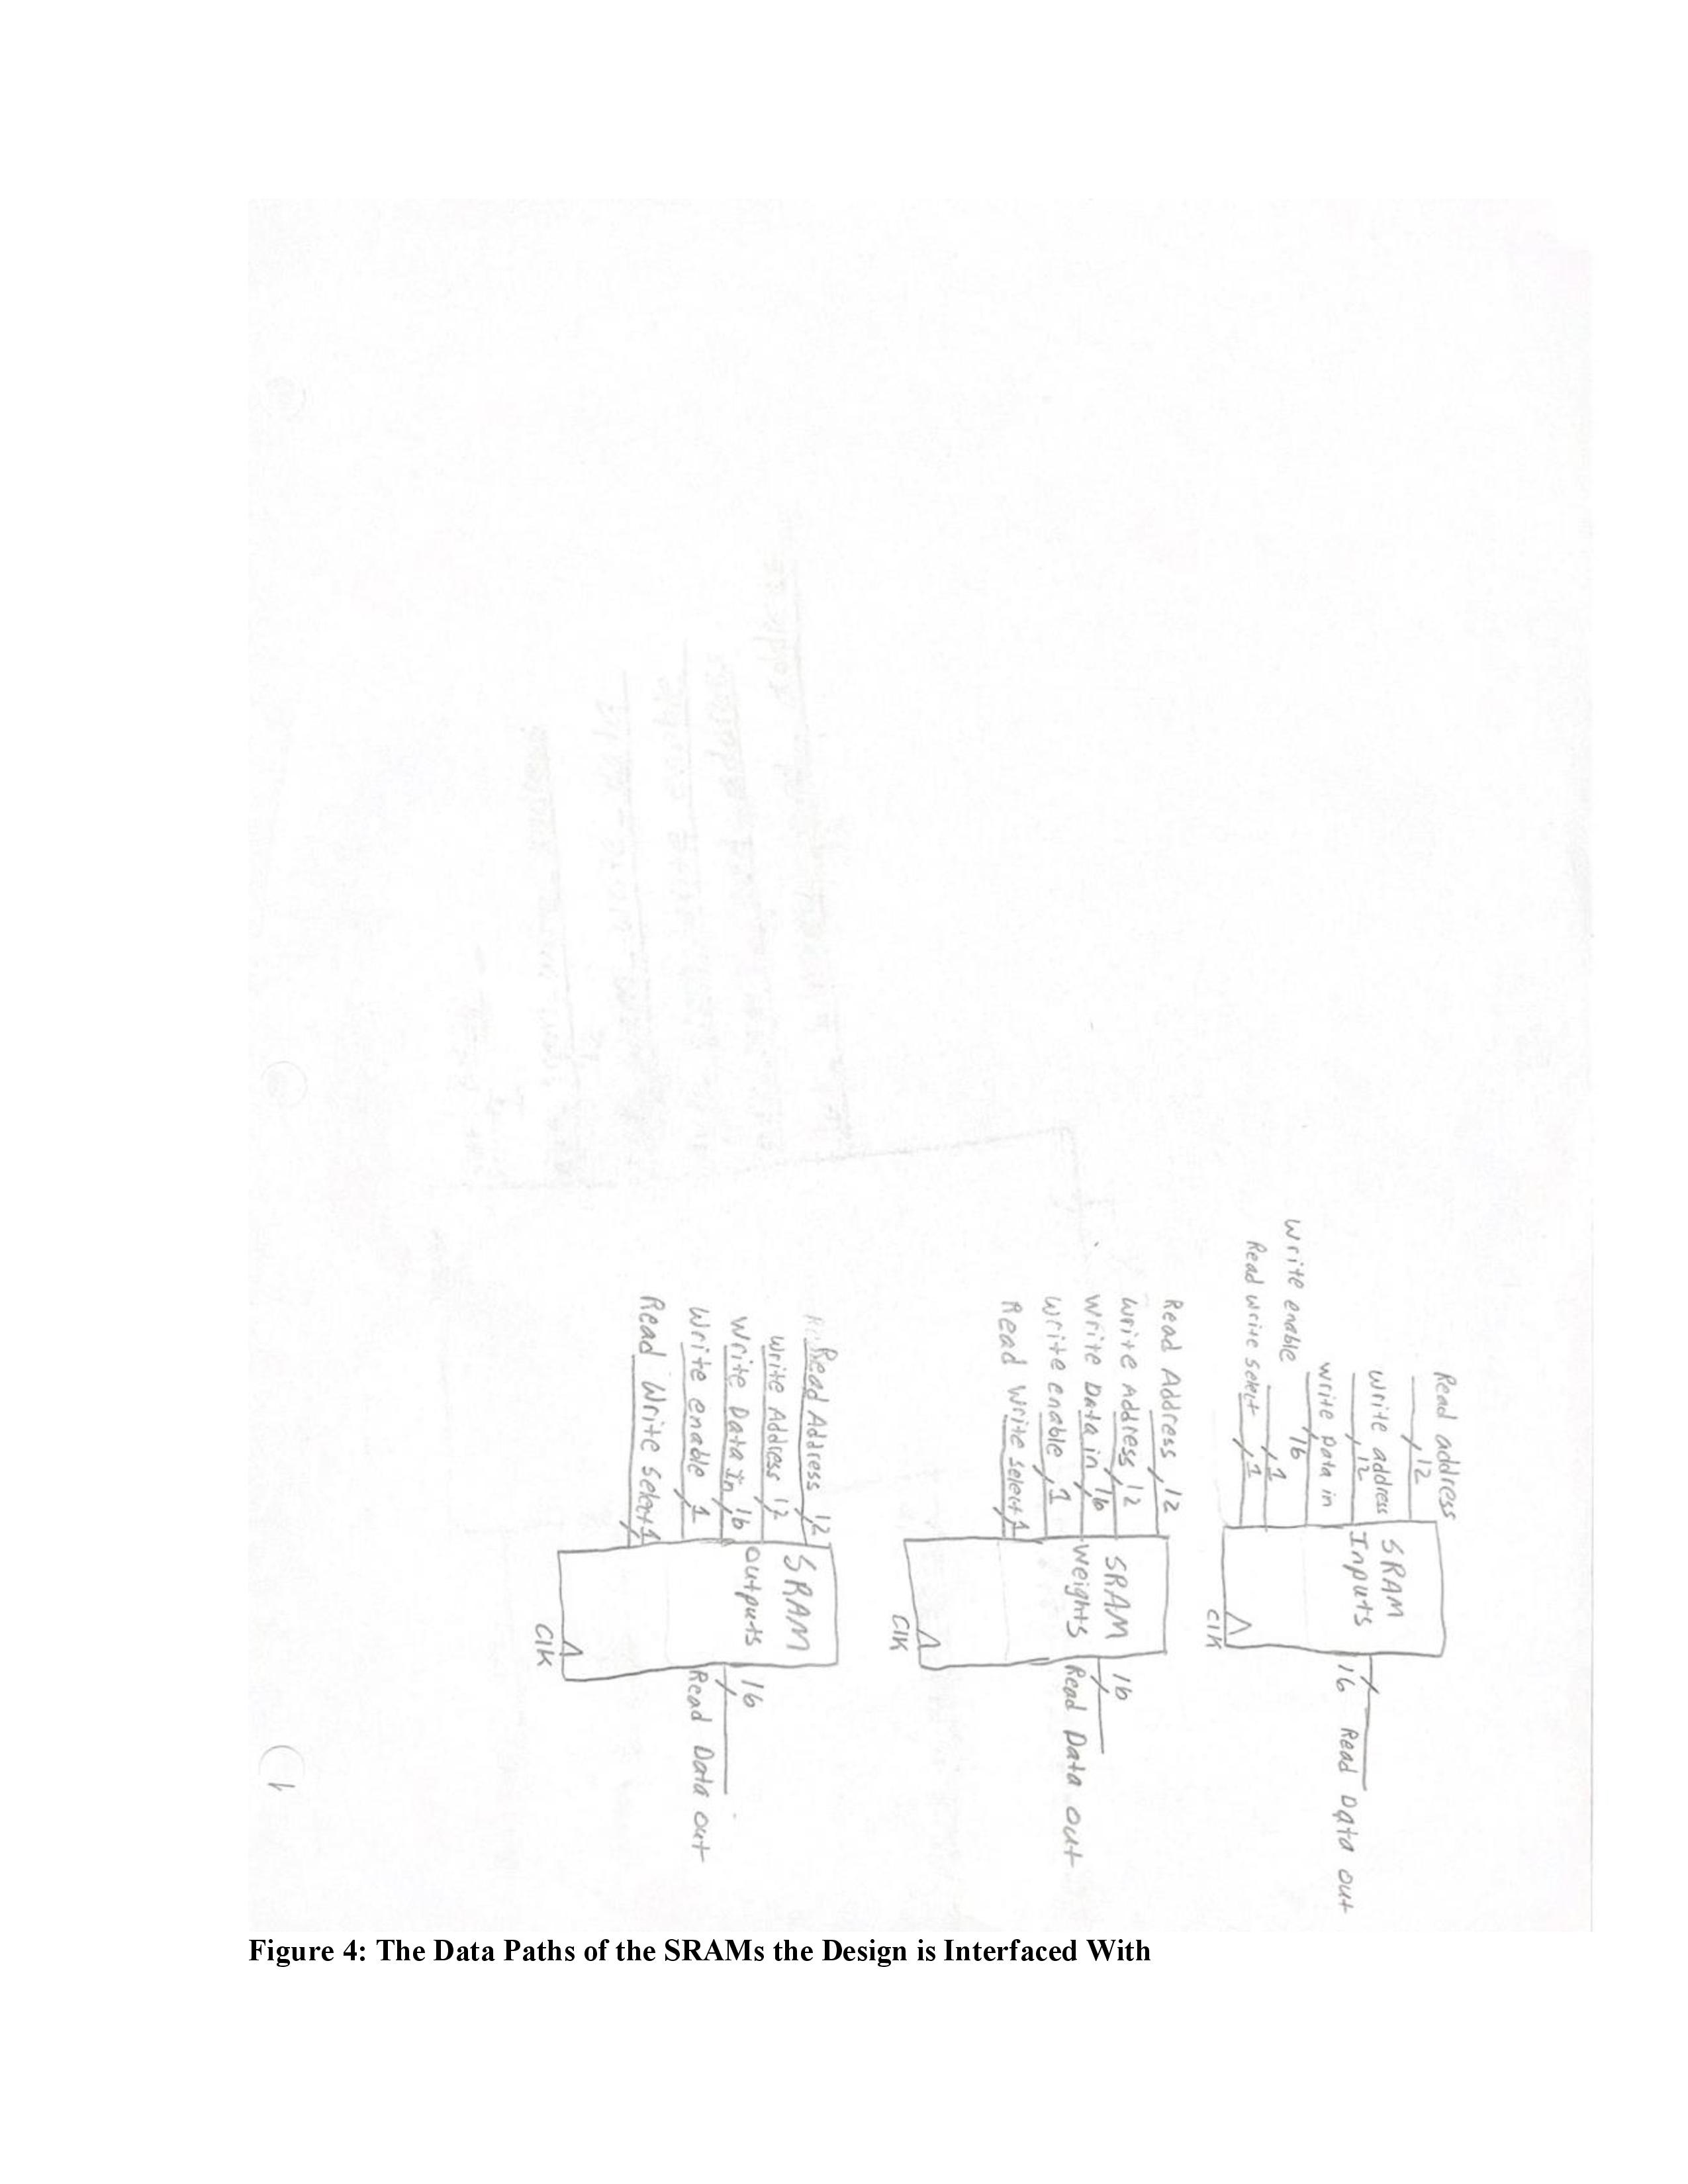 Read address
12
Write address
12
Write Data in
16
Write enable
1
Read write select
1
SRAM
Inputs
Clk
16
Read Data out
Read Address 12
Write Address 12
Write Data in 16
Write enable 1
Read Write select 1
SRAM
Weights
Clk
16
Read Data out
Read Address 12
Write Address 12
Write Data In 16
Write enable 1
Read Write Select 1
SRAM
Outputs
Clk
16
Read Data out
1
Figure 4: The Data Paths of the SRAMs the Design is Interfaced With